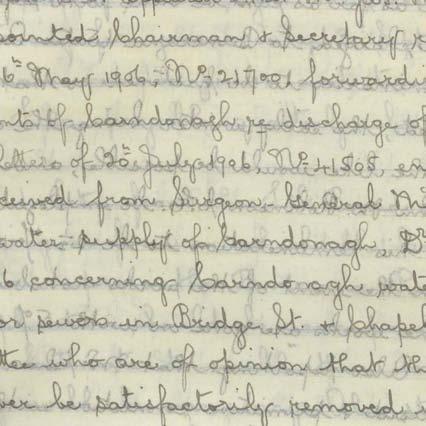 pointed Chairman & Secretary
6th May 1906, No. 21700, forwardi
nts of Carndonagh re discharge of
letters of 20th July 1906, No. 41505, en
ceived from Surgeon-General M
water supply of Carndonagh, Dr
6 concerning Carndonagh wate
or sewers in Bridge St. & Chapel
ttee who are of opinion that th
ver be satisfactorily removed